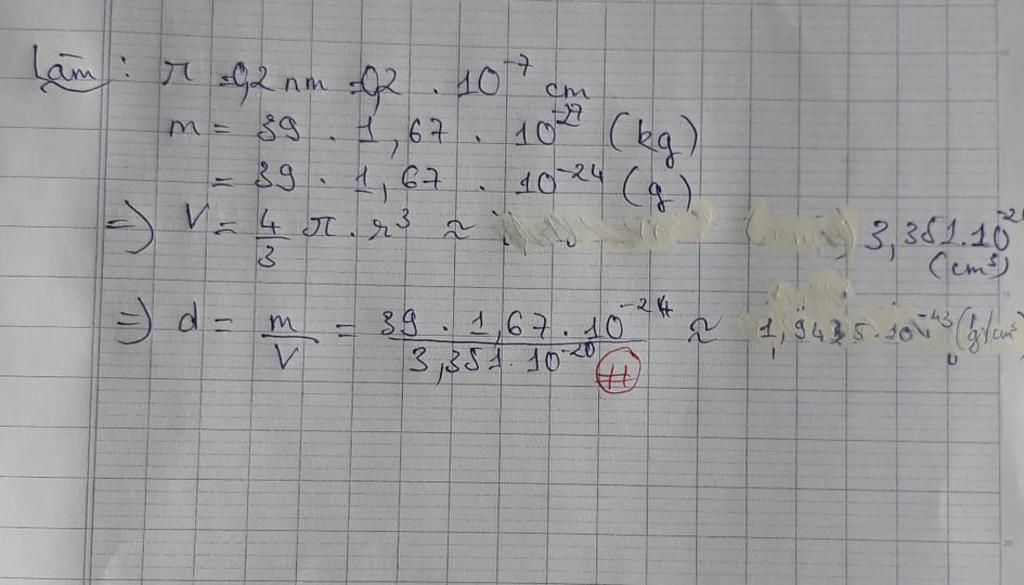 Làm : r = 0,2 nm = 0,2 . 10^-7 cm
m = 39 . 1,67 . 10^-27 (kg)
= 39 . 1,67 . 10^-24 (g)
=> V = 4/3 π . r³ ≈ 3,351.10^-20
(cm³)
=> d = m/V = 39 . 1,67 . 10^-24 / 3,351 . 10^-20 ≈ 1,9435.10^-43 (g/cm³)